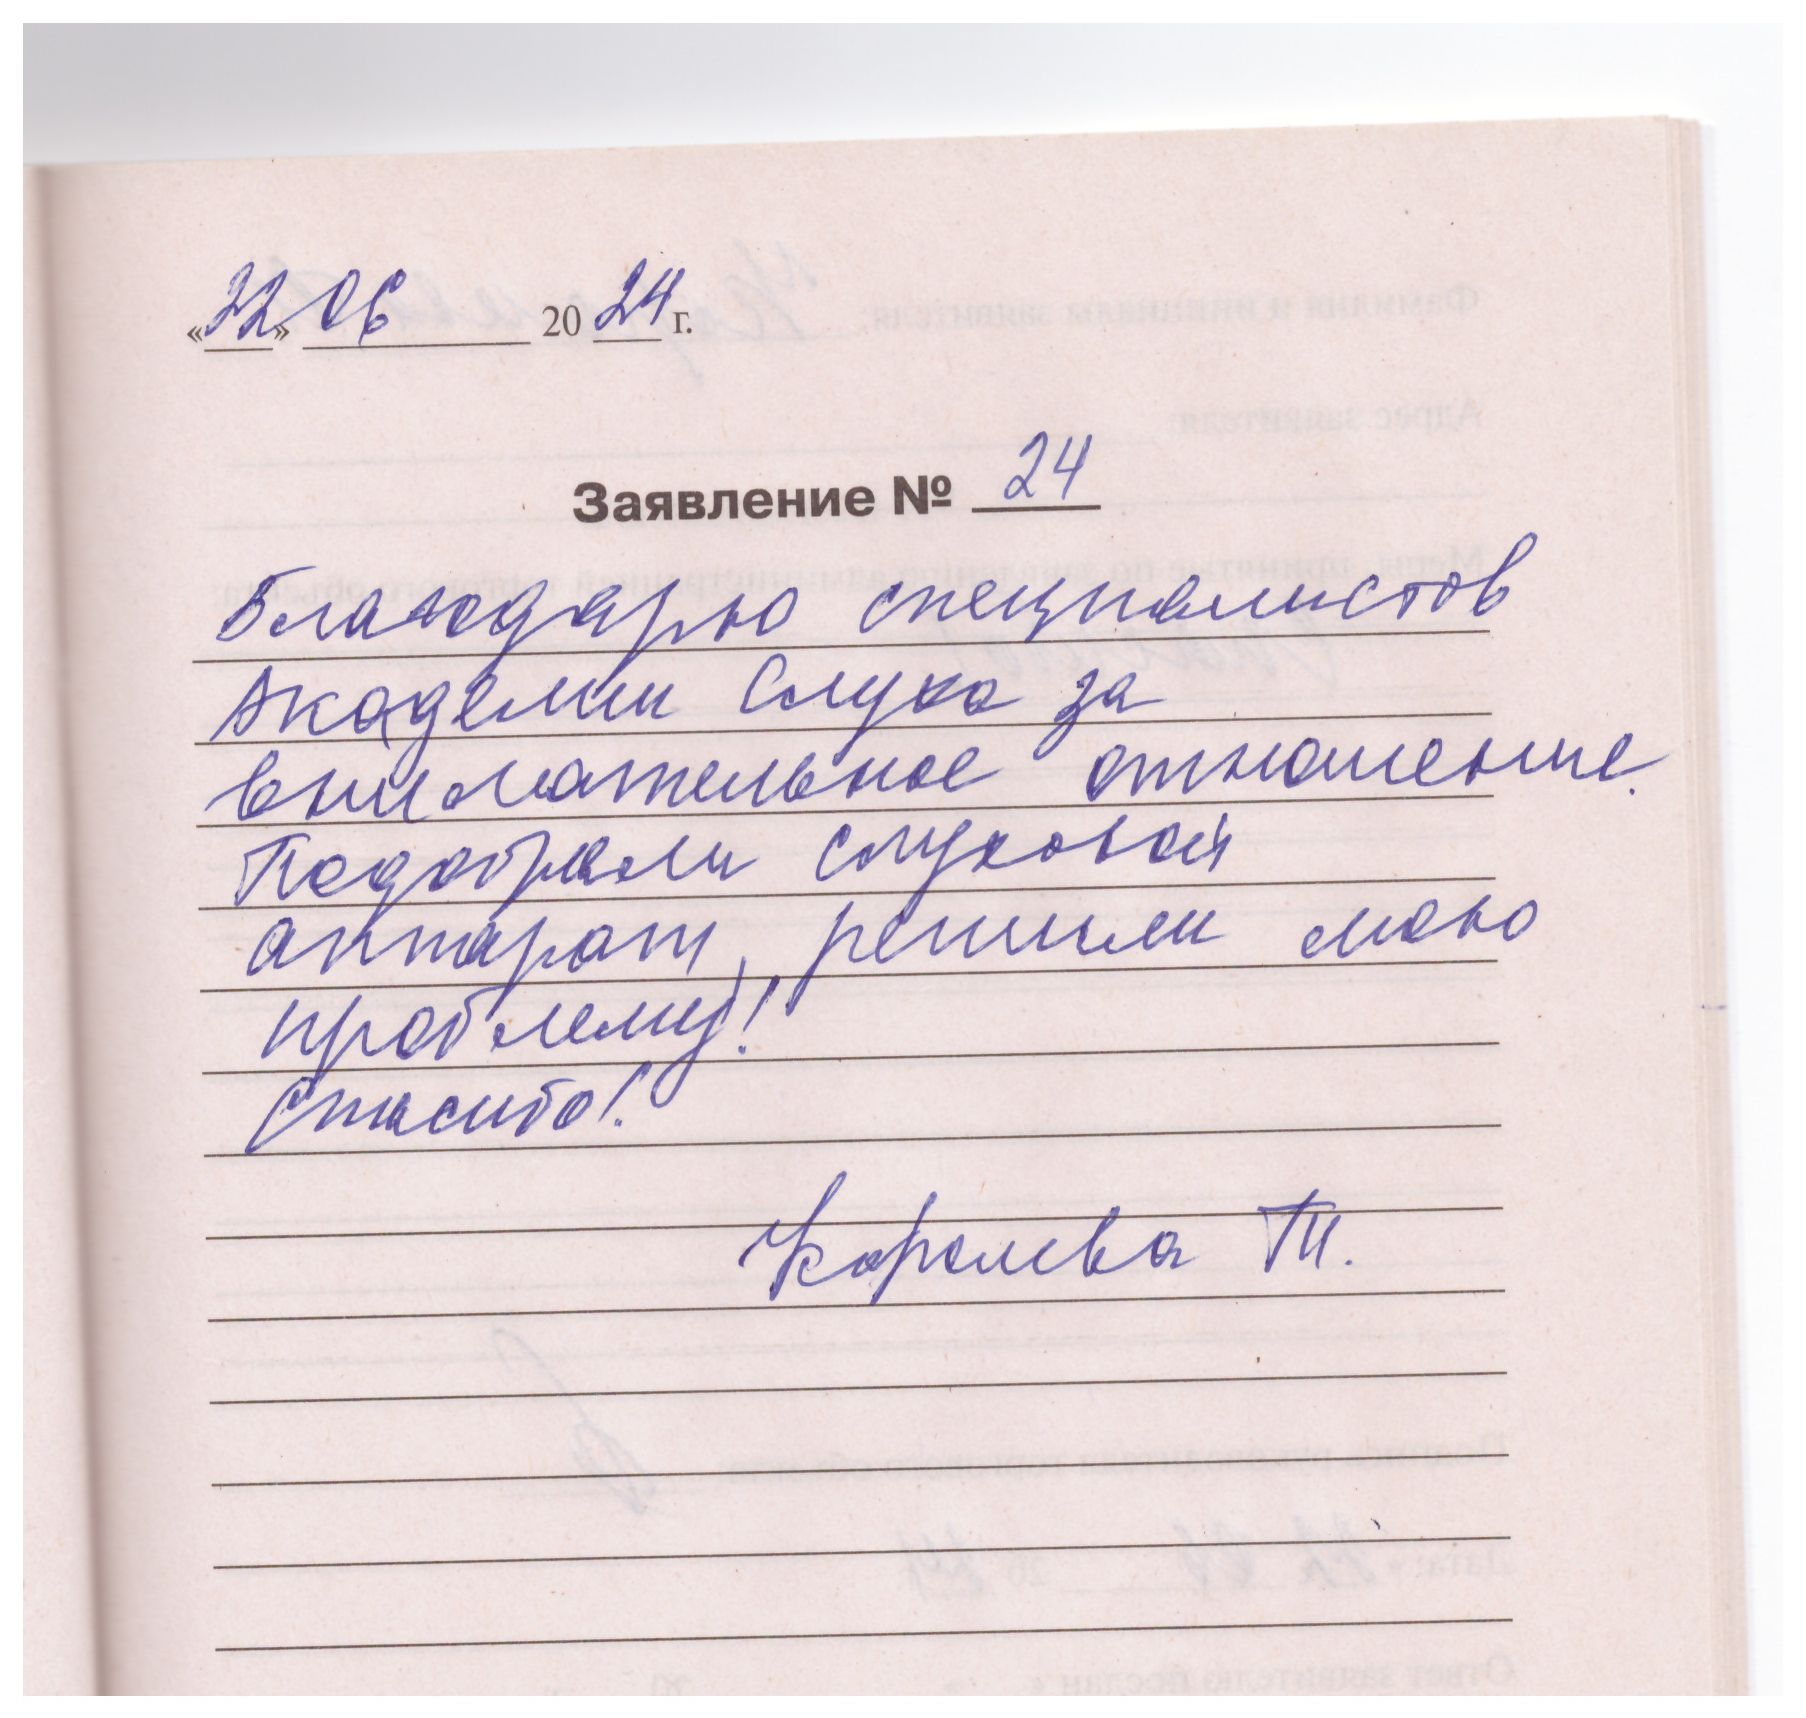 «22» 06 2024 г.
Заявление № 24
Благодарю специалистов
Академии Слуха за
внимательное отношение.
Подобрали слуховой
аппарат, решили мою
проблему!
Спасибо!
Королева Т.